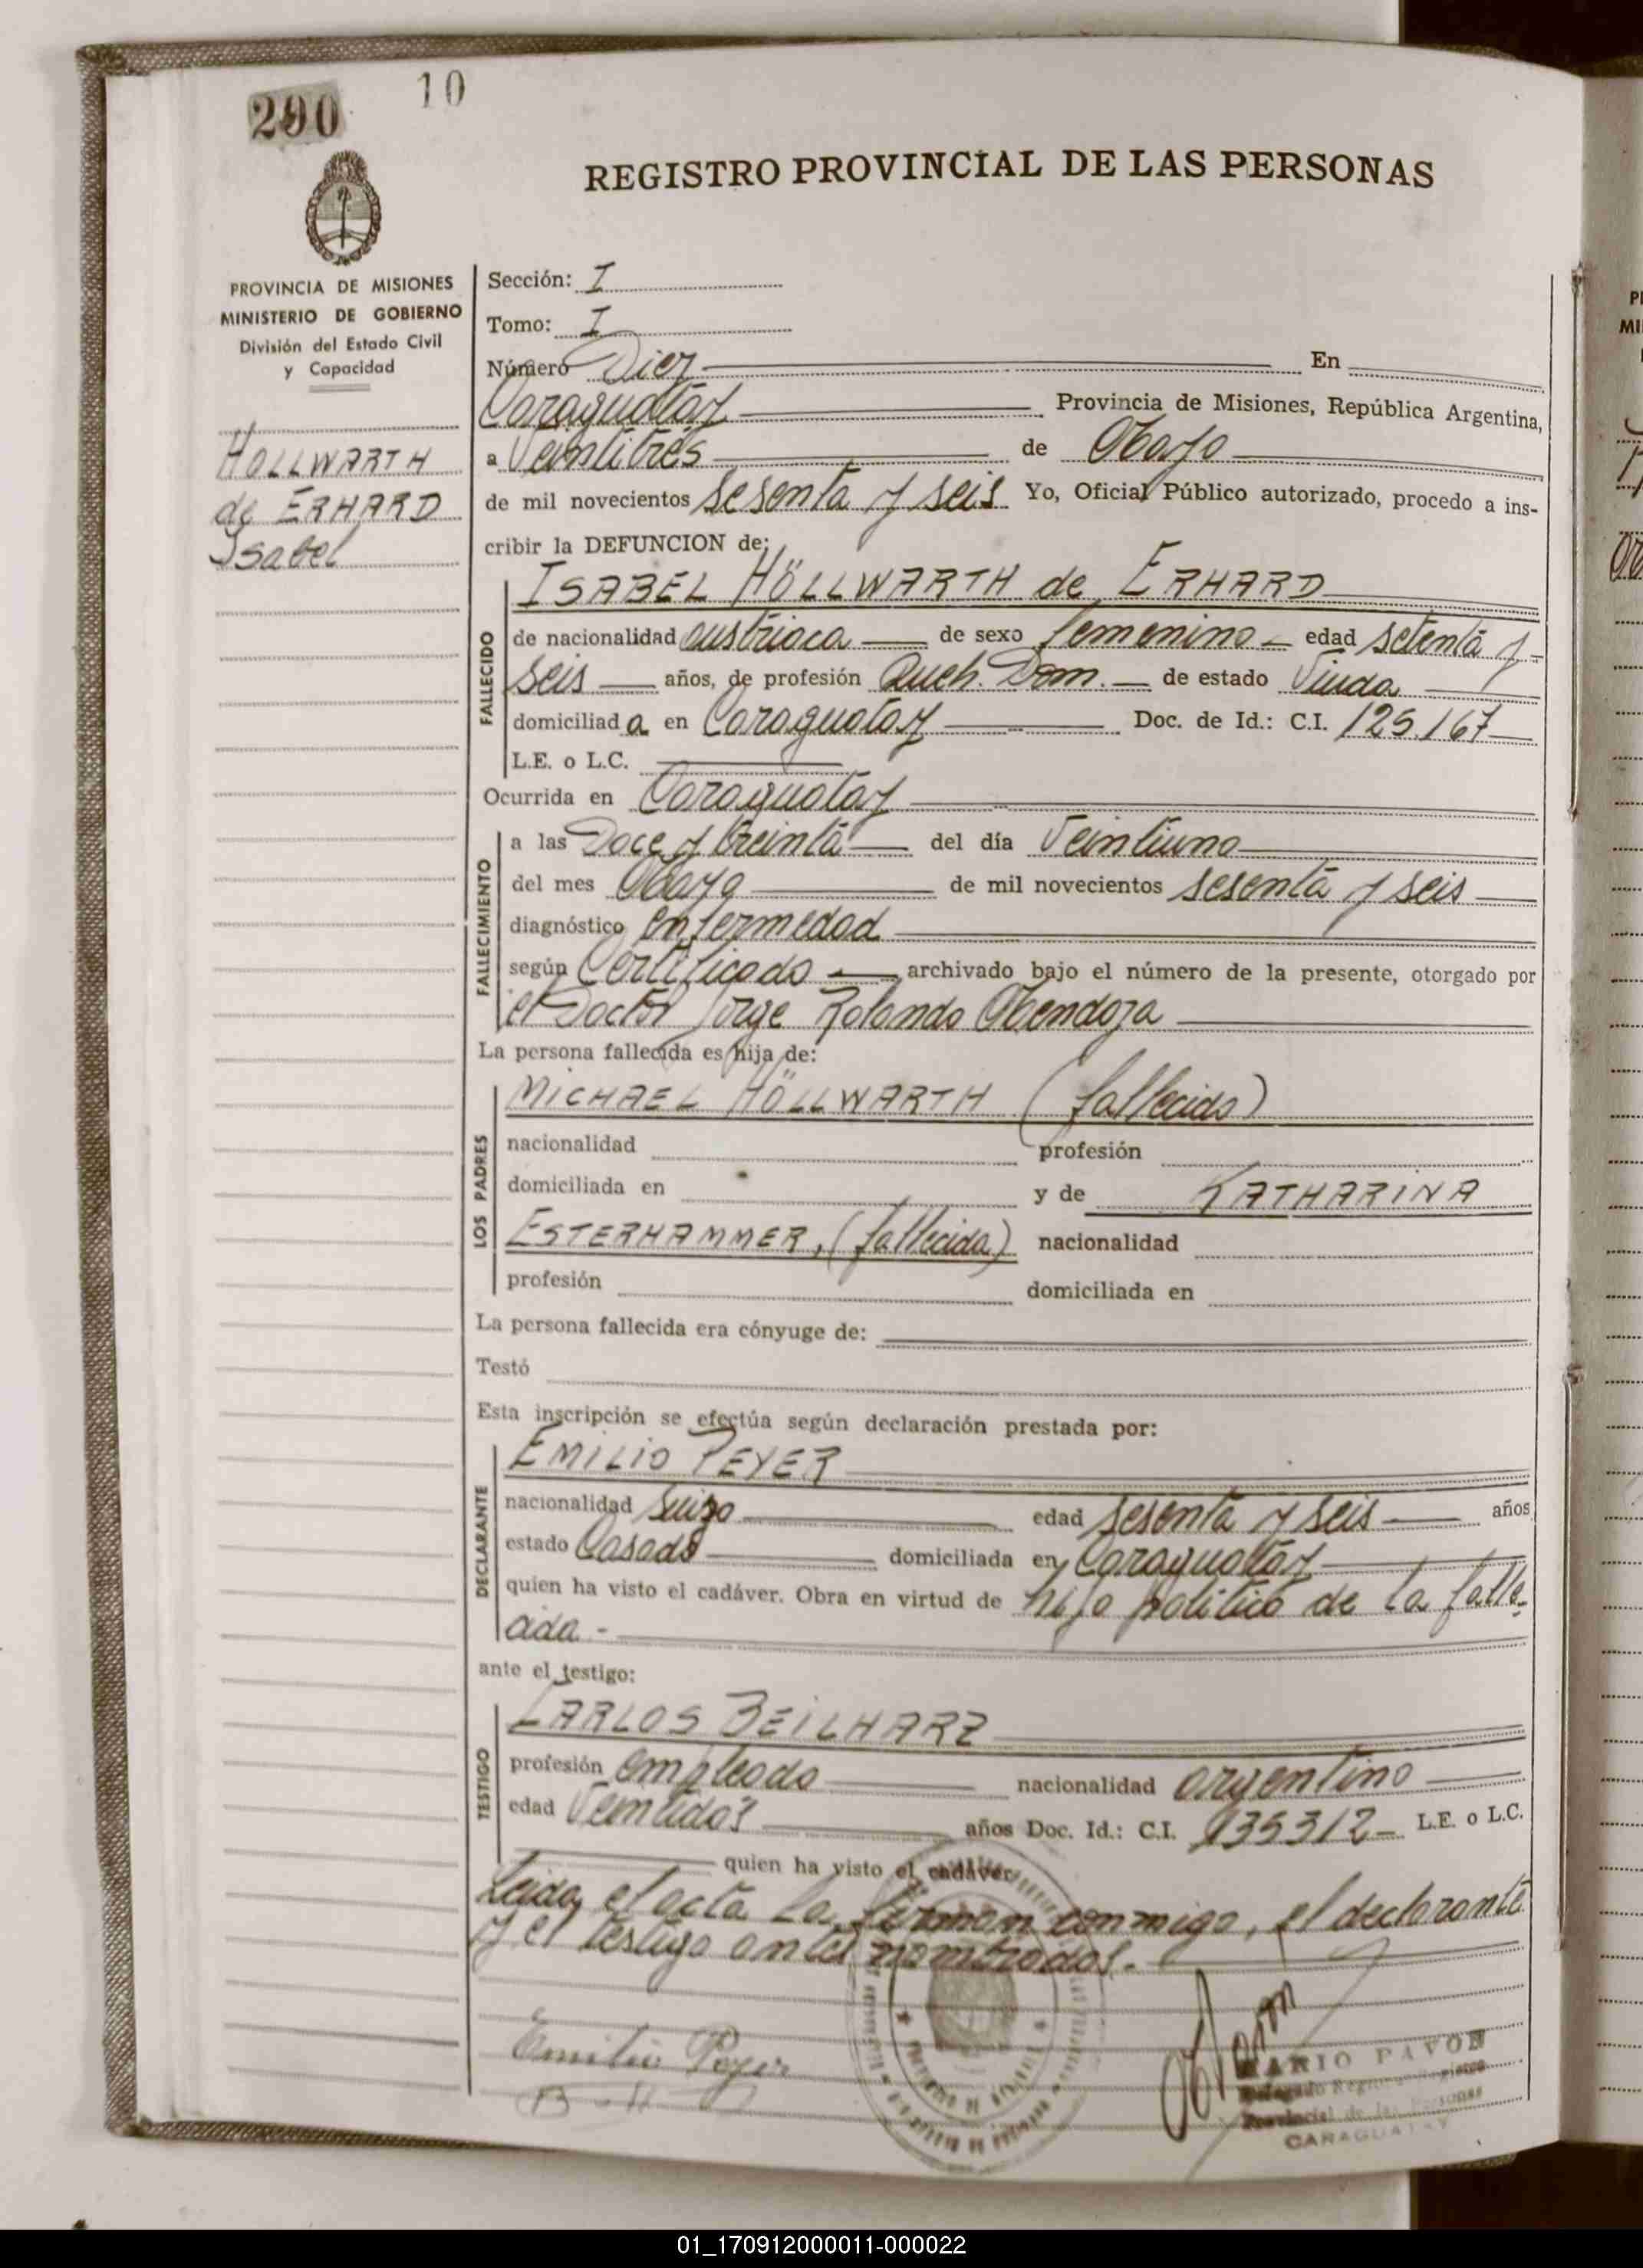 290
10
REGISTRO PROVINCIAL DE LAS PERSONAS
PROVINCIA DE MISIONES
MINISTERIO DE GOBIERNO
División del Estado Civil
y Capacidad
HOLLWARTH
de ERHARD
Isabel
Sección: I
Tomo: I
Número Diez En
Caraguatay Provincia de Misiones, República Argentina,
a Veintitrés de Mayo
de mil novecientos sesenta y seis Yo, Oficial Público autorizado, procedo a ins-
cribir la DEFUNCION de:
ISABEL HÖLLWARTH de ERHARD
FALLECIDO
de nacionalidad austriaca de sexo femenino edad setenta y
seis años, de profesión Queh. Dom. de estado Viuda
domiciliad a en Caraguatay Doc. de Id.: C.I. 125.167
L.E. o L.C.
Ocurrida en Caraguatay
FALLECIMIENTO
a las Doce y treinta del día Veintiuno
del mes Mayo de mil novecientos sesenta y seis
diagnóstico enfermedad
según Certificado archivado bajo el número de la presente, otorgado por
el Doctor Jorge Rolando Mendoza
La persona fallecida es hija de:
LOS PADRES
MICHAEL HÖLLWARTH (fallecido)
nacionalidad profesión
domiciliada en y de KATHARINA
ESTERHAMMER, (fallecida) nacionalidad
profesión domiciliada en
La persona fallecida era cónyuge de:
Testó
Esta inscripción se efectúa según declaración prestada por:
DECLARANTE
EMILIO PEYER
nacionalidad Suizo edad sesenta y seis años
estado Casado domiciliada en Caraguatay
quien ha visto el cadáver. Obra en virtud de hijo político de la falle-
cida.-
ante el testigo:
TESTIGO
CARLOS BEILHARZ
profesión empleado nacionalidad argentino
edad Veintidós años Doc. Id.: C.I. 135312- L.E. o L.C.
quien ha visto el cadáver
Leida el acta la firman conmigo, el declarante
y el testigo antes nombrados.-
Emilio Peyer
MARIO PAVON
Provincial de las Personas
CARAGUATAY
01_170912000011-000022